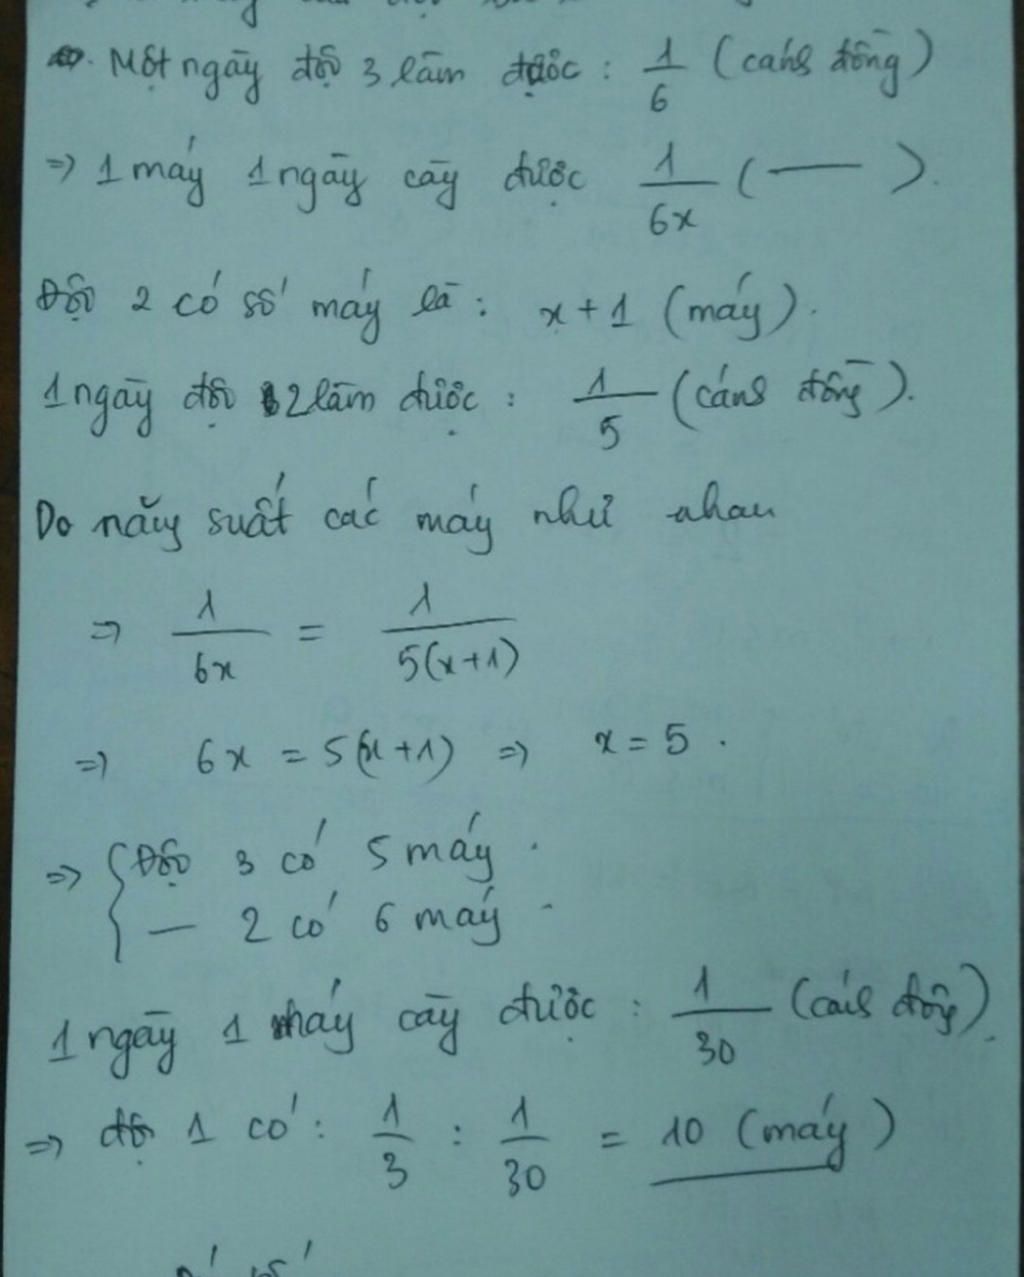 Một ngày đội 3 làm được : 1/6 (cánh đồng)
=> 1 máy 1 ngày cày được 1/6x ( — ).
Đội 2 có số máy là : x + 1 (máy).
1 ngày đội 2 làm được : 1/5 (cánh đồng).
Do năng suất các máy như nhau
=> 1/6x = 1/5(x+1)
=> 6x = 5(x+1) => x = 5 .
=> { Đội 3 có 5 máy .
— 2 có 6 máy .
1 ngày 1 máy cày được : 1/30 (cánh đồng).
=> đội 1 có : 1/3 : 1/30 = 10 (máy)